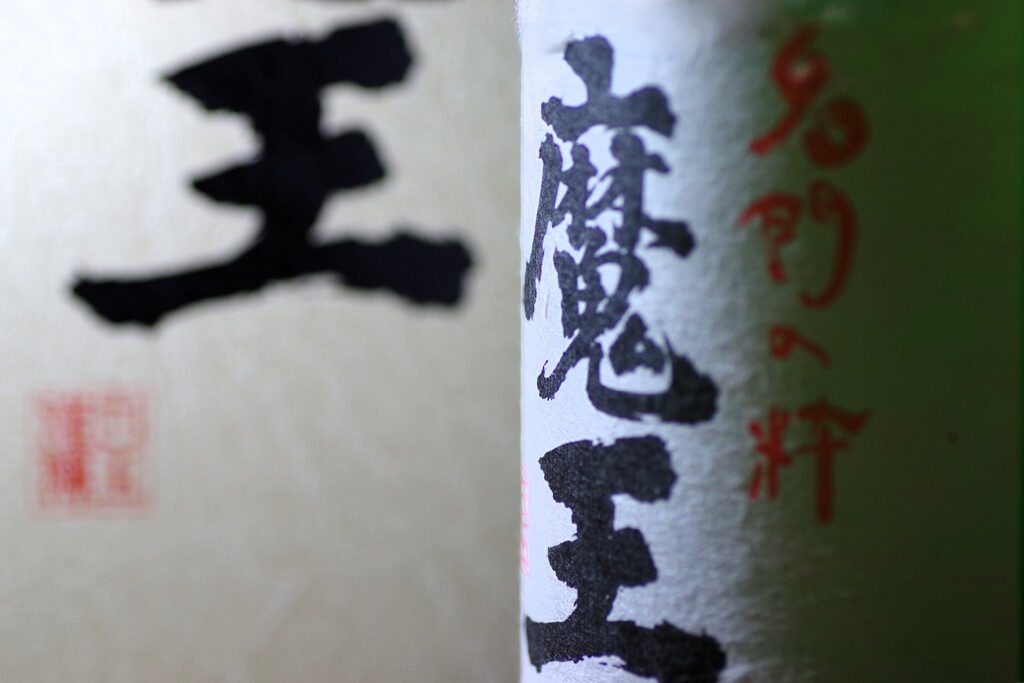 名門の粋
魔王
王